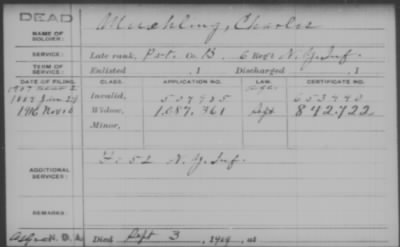 DEAD
NAME OF SOLDIER: Muehling, Charles
SERVICE: Late rank, Pvt. Co. B, 6 Reg't N.Y. Inf.
TERM OF SERVICE: Enlisted , 1 Discharged , 1
DATE OF FILING. CLASS. APPLICATION NO. LAW. CERTIFICATE NO.
1907
Invalid,
Widow, 1,087,361 Sept 842,722
1916 Nov 6
Minor,
ADDITIONAL SERVICES: H. 52 N.Y. Inf.
REMARKS:
Died Sept 3, 19 , at